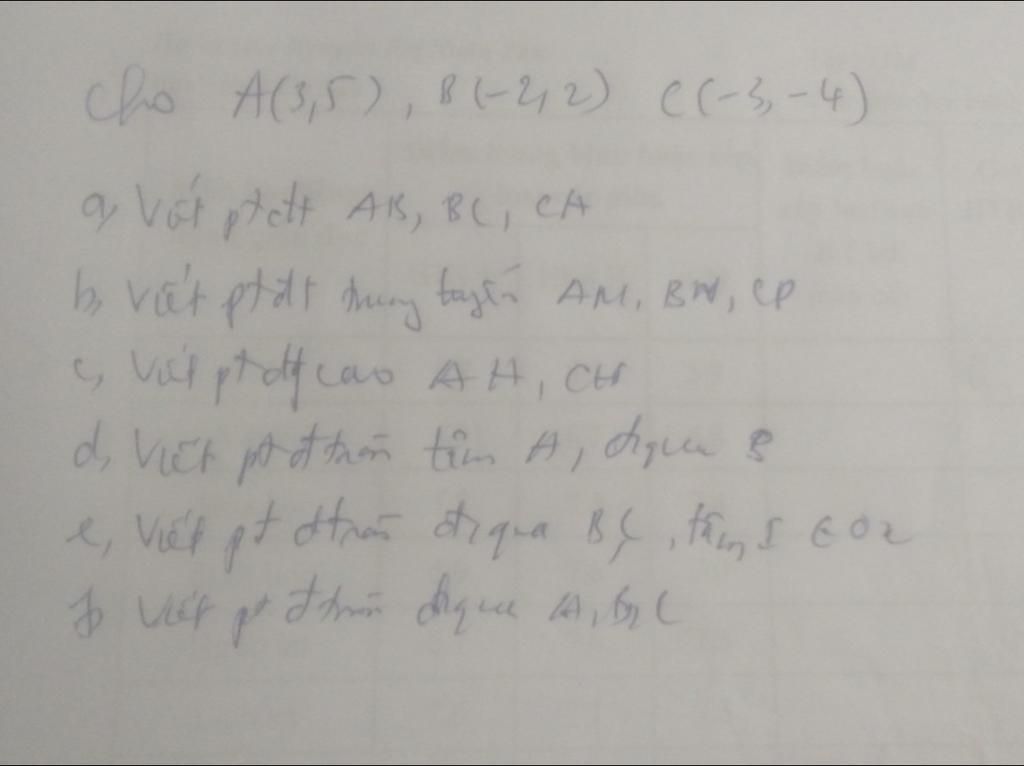 Cho A(3,5), B(-2,2) C(-3,-4)
a, Viết ptđt AB, BC, CA
b, Viết ptđt trung tuyến AM, BN, CP
c, Viết pt đg cao AH, CH
d, Viết pt đ tròn tâm A, đi qua B
e, Viết pt đ tròn đi qua B, C, tâm I ∈ Ox
f, Viết pt đ tròn đi qua A, B, C